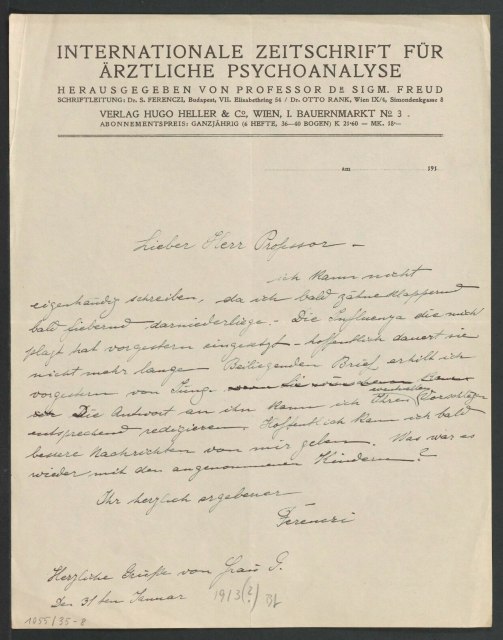 INTERNATIONALE ZEITSCHRIFT FÜR
ÄRZTLICHE PSYCHOANALYSE
HERAUSGEGEBEN VON PROFESSOR DR SIGM. FREUD
SCHRIFTLEITUNG: Dr. S. FERENCZI, Budapest, VII. Elisabethring 54 / Dr. OTTO RANK, Wien IX/4, Simondenkgasse 8
VERLAG HUGO HELLER & Co, WIEN, I. BAUERNMARKT No 3 .
ABONNEMENTSPREIS: GANZJÄHRIG (6 HEFTE, 36—40 BOGEN) K 21·60 = MK. 18·—
am 191
Lieber Herr Professor –
ich kann nicht
eigenhändig schreiben, da ich bald zähneklappernd
bald fiebernd darniederliege. – Die Influenza die mich
plagt hat vorgestern eingesetzt – hoffentlich dauert sie
nicht mehr lange. Beiliegenden Brief erhielt ich
vorgestern von Jung
Die Antwort an ihn kann ich Ihren Vorschlägen
entsprechend redigieren. Hoffentlich kann ich bald
bessere Nachrichten von mir geben. Was war es
wieder mit den angenommenen Kindern?
Ihr herzlich ergebener
Ferenczi
Herzliche Grüße von Frau G.
Den 31ten Januar 1913(?)
1055/35-8